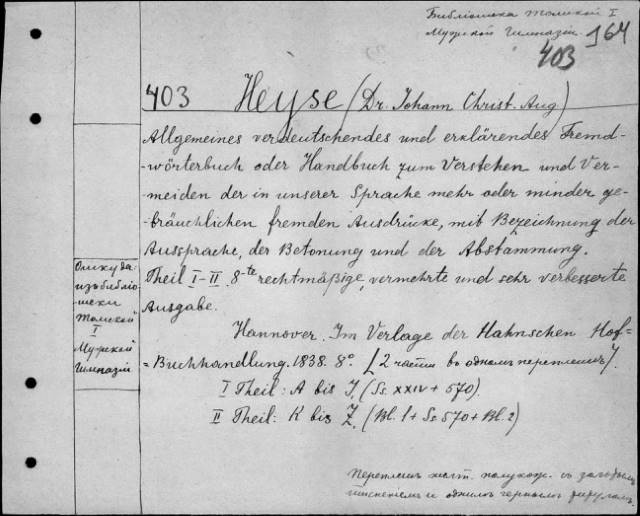 Библіотека Томской I
Мужской Гимназіи. 164
403
403 Heyse (Dr. Johann Christ. Aug)
Allgemeines verdeutschendes und erklärendes Fremd-
-wörterbuch oder Handbuch zum Verstehen und Ver-
-meiden der in unserer Sprache mehr oder minder ge-
-bräuchlichen fremden Ausdrücke, mit Bezeichnung der
Aussprache, der Betonung und der Abstammung.
Theil I-II. 8-te rechtmäßige, vermehrte und sehr verbesserte
Ausgabe.
Откуда:
изъ библіо-
-теки
Томской
I
Мужской
Гимназіи
Hannover. Im Verlage der Hahnschen Hof=
=Buchhandlung. 1838. 8° [2 части въ одномъ переплетѣ].
I Theil: A bis J, (Ss. XXIV + 570).
II Theil: K bis Z, (Bl. 1 + Ss. 570 + Bl. 2)
Переплетъ полукож. съ
тисненіемъ и однимъ чернымъ